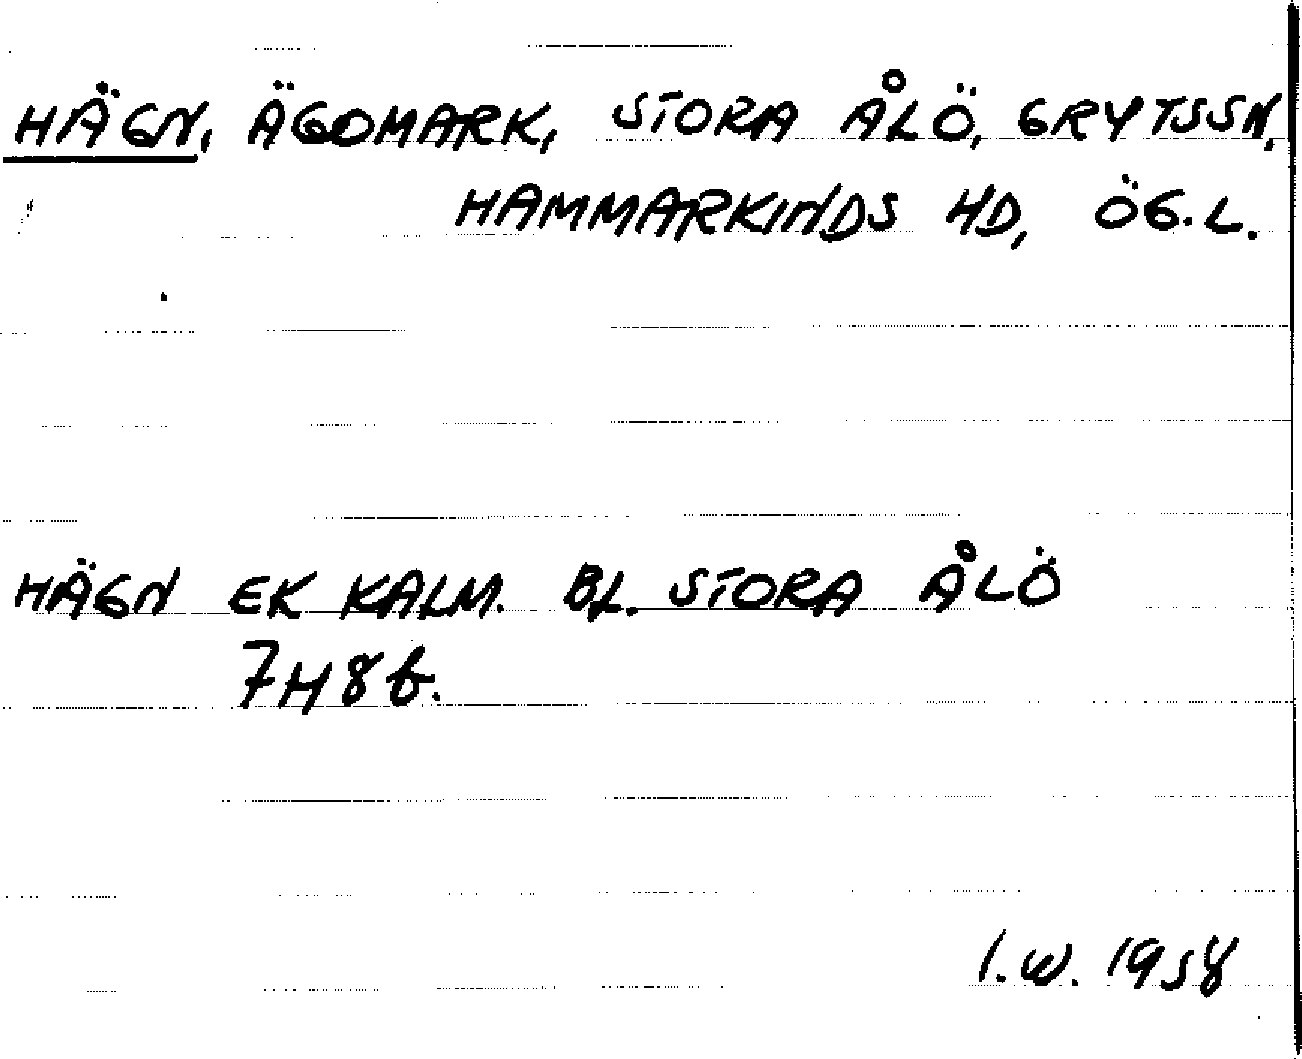 HÄGN, ÄGOMARK, STORA ÅLÖ, GRYTSSN,
HAMMARKINDS HD, ÖG.L.
HÄGN EK KALM. BL. STORA ÅLÖ
7H8b.
I.W. 1958